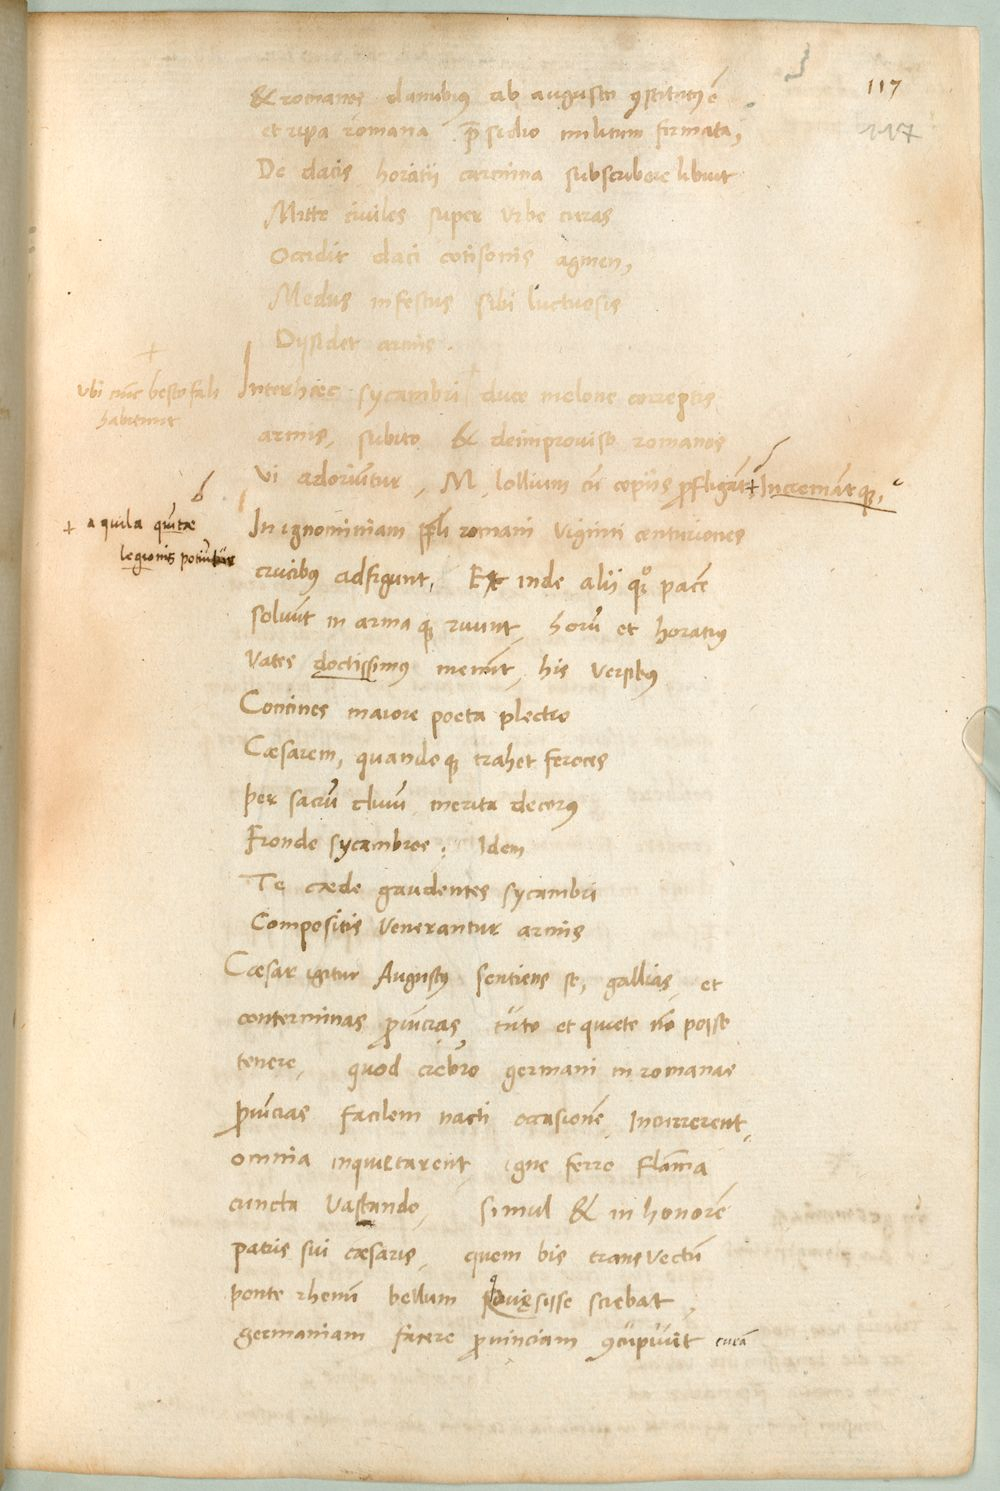 117
117
& romanos danubius ab augusto ꝯstitutꝰ ē
et ripa romana p̄sidio militum firmata,
De dacis horatii carmina subscribere libuit
Mitte civiles super Urbe curas
Occidit daci cotisonis agmen,
Medus infestus sibi luctuosis
Dyssidet armis.
+
Ubi nūc bestofali
habitant
Interhæc sycambri + duce melone correptis
armis, subito & deimproviso romanos
Vi adoriūtur, M. lollium cū copiis ꝓfligāt + Incremātqꝫ,
b
+ aquila quītæ
legionis potiūtur
In ignominiam ppl̄i romani Viginti centuriones
crucibus adfigunt, Et inde alii qꝫ pacē
solvūt in armaqꝫ ruunt, horū et horatius
Vates doctissimus meminit, his Versibus
Concines maiore poeta plectro
Cæsarem, quandoqꝫ trahet feroces
Per sacrū clivū merita decorus
Fronde sycambros: Idem
Te cæde gaudentes sycambri
Compositis Venerantur armis
Cæsar igitur Augustus sentiens se, gallias, et
conterminas ꝓvīcias, tuto et quiete nō posse
tenere, quod crebro germani in romanas
ꝓvīcias facilem nacti occasionē Incurrerent,
omnia inquietarent igne ferro flāma
cuncta Vastando, simul & in honorē
patris sui cæsaris, quem bis transvectū
ponte rhenū bellum quęsisse sciebat,
germaniam facere ꝓvinciam ꝯcupivit curā